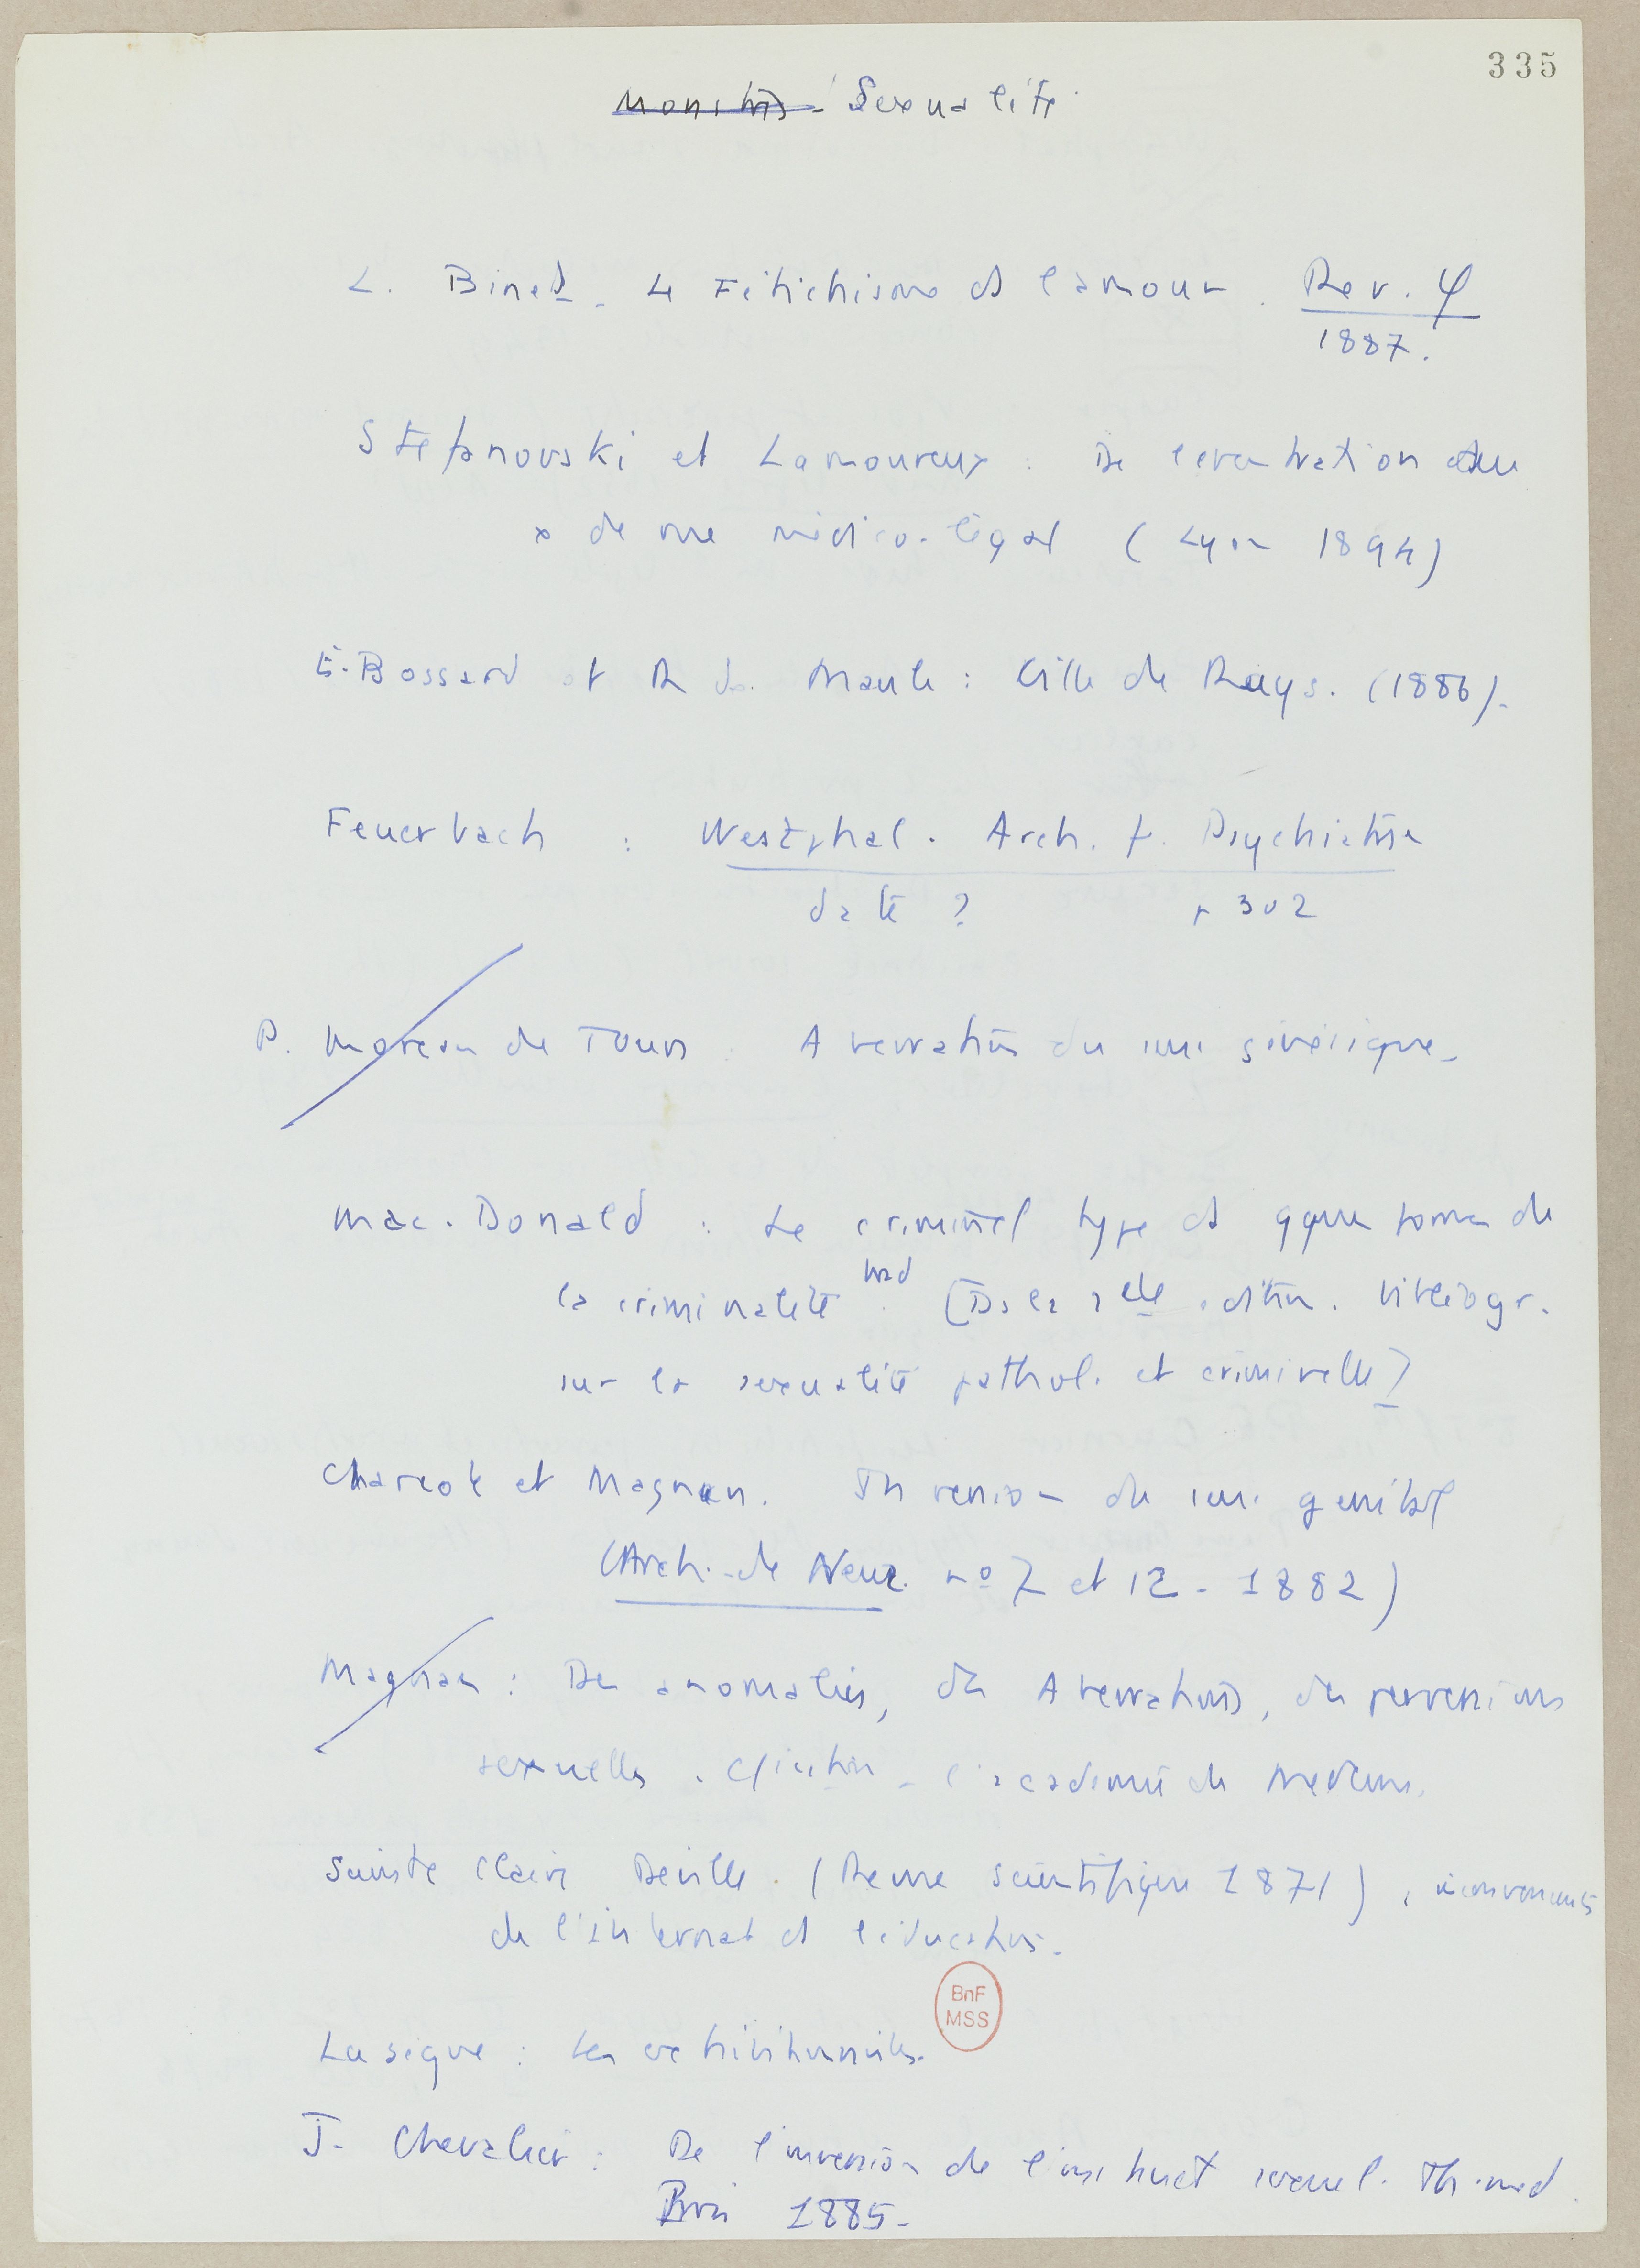 335
Monstres - Sexualité
L. Binet. Le Fétichisme ds l'amour. Rev. φ
1887.
Stefanovski et Lamoureux : De l'eventration au
de vue médico-légal (Lyon 1894)
E. Bossard et R de Maule : Gille de Rays. (1886).
Feuerbach : Westphal. Arch. f. Psychiatrie
date ? p 302
P. Moreau de Tours Aberrations du sens génésique.
Mac. Donald : Le criminel type ds qques formes de
la criminalité trad (Ds la 2e édition. bibliogr.
sur la sexualité pathol. et criminelle)
Charcot et Magnan. Inversion du sens genital
(Arch. de Neur. nº 7 et 12 - 1882)
Magnan : Des anomalies, des Aberrations, des perversions
sexuelles. l'academie de Medecine.
Sainte Claire Deville. (Revue scientifique 1871), inconvenients
de l'internat ds l'education.
Lasègue : Les exhibitionnistes.
BnF
MSS
J. Chevalier : De l'inversion de l'instinct sexuel. Th. med.
1885.